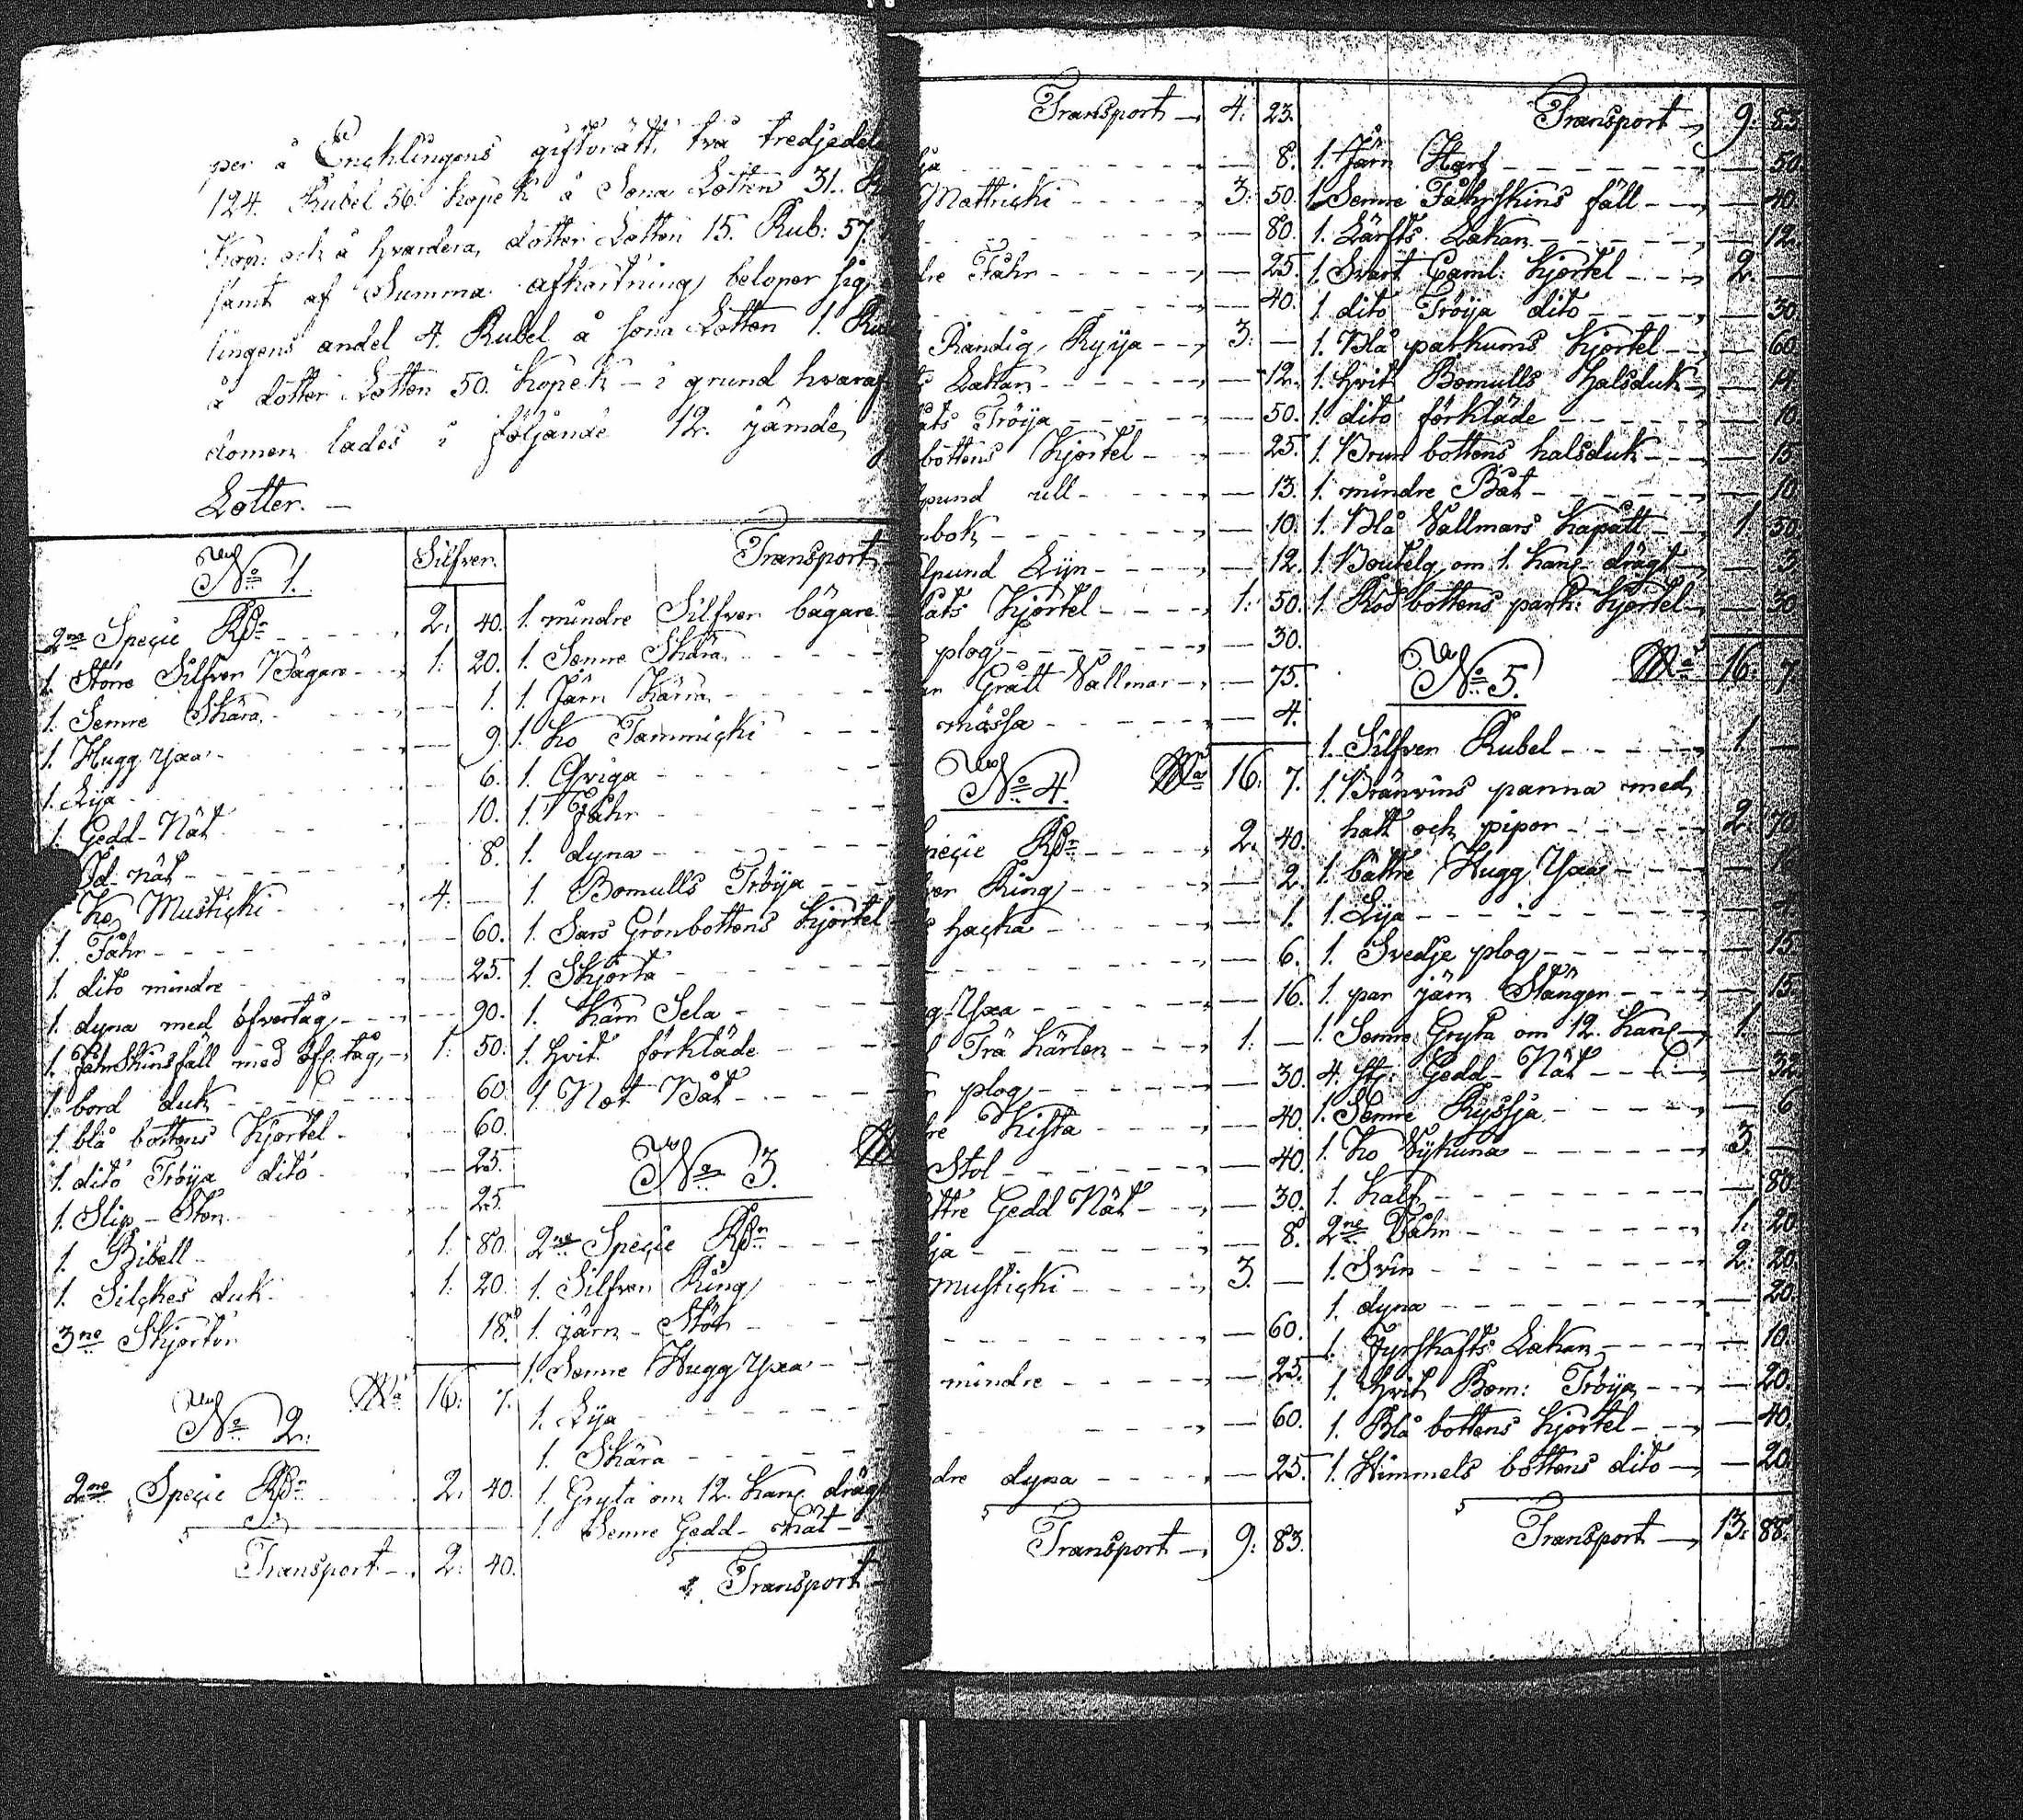 per å Encklingens giftorätt, två tredjedel
124. Rubel 56. Kopek å Sona Lotten 31.
Kop: och å hvardera dotter Lotten 15. Rub: 57.
samt af Summa afkortning beloper sig,
lingens andel 4. Rubel å Sona Lotten 1.
å dotter Lotten 50. Kopek – i grund hvaraf
domen lades i följande 12. jämde,
Lotter. –
No. 1. Silfver.
2ne Specie Rdr 2. 40.
1. Större Silfver Bägare 1. 20.
1. Semre Skära 1.
1. Hugg Yxa 9.
1. Lija 6.
1. Gedd-Nät 10.
Id-nät 8.
Ko Musticki 4. —
1. Fåhr 60.
1. dito mindre 25.
1. dyna med öfvertåg 90.
1. Fåhrskinsfäll med öfv: tåg 1. 50.
1. bord duk 60.
1. blå bottens Kjortel 60.
1. dito Tröija dito 25.
1. Slip-Sten 25.
1. Bibell 1. 80.
1. Silckes duk 1. 20.
3ne Skjortor 18.
16. 7.
No. 2.
2ne Specie Rdr 2. 40.
Transport 2. 40.
Transport
1. mindre Silfver bägare
1. Semre Skära
1. Järn Kärra
1. Ko Tammicki
1. Qviga
1. Fåhr
1. dyna
1. Bomulls Tröija
1. Sars Grönbottens Kjortel
1. Skjorta
1. Kärr Sela
1. hvit förkläde
1. Not Båt
No. 3.
2ne Specie Rdr
1. Silfver Ring
1. järn-Stör
1. Semre Hugg Yxa
1. Lija
1. Skära
1. Gryta om 12. Kan: drägt
1. Semre Gedd-nät
Transport
Transport 4. 23.
ja 8.
Mattricki 3. 50.
80.
dre Fåhr 25.
40.
Randig Ryija 3. —
Lakan 12.
ats Tröija 50.
bottens Kjortel 25.
pund ull 13.
bok 10.
lpund Lijn 12.
ats Kjortel 1. 50.
plog 30.
Grått Vallmar 75.
mössa 4.
No. 4. 16. 7.
pecie Rdr 2. 40.
ver Ring 2.
hacka 1.
6.
g Yxa 16.
Trä Kärlen 1. —
plog 30.
dre Kista 40.
Stol 40.
ttre Gedd Nät 30.
ja 8.
musticki 3. —
60.
mindre 25.
60.
dre dyna 25.
Transport 9. 83.
Transport 9. 83.
1. Järn Harf 50.
1. Semre Fåhrskins fäll 40.
1. Lärfts Lakan 12.
1. Svart Caml: Kjortel 2. —
1. dito Tröija dito 30.
1. Blå parkums Kjortel 60.
1. hvit Bomulls halsduk 14.
1. dito förkläde 10.
1. Brun bottens halsduk 15.
1. mindre Båt 10.
1. Blå Vallmars Kapått 1. 50.
1. Boutelg om 1. Kan: drägt 3.
1. Röd bottens park: Kjortel 30.
No. 5. 16. 7.
1. Silfver Rubel 1. —
1. Bränvins panna med
hatt och pipor 2. 70.
1. bättre Hugg Yxa
1. Lija
1. Svedje plog 15.
1. par järn Stänger 15.
1. Semre Gryta om 12. Kan: 1. —
4. st: Gedd-Nät 32.
1. Semre Ryssja 6.
1. Ko Vijkuna 3. —
1. Kalf 80.
2ne Fåhr 1. 20.
1. Svin 2. 20.
1. dyna 20.
1. Fyrskafts Lakan 10.
1. hvit Bom: Tröija 20.
1. Blå bottens Kjortel 40.
1. Himmels bottens dito 20.
Transport 13. 88.